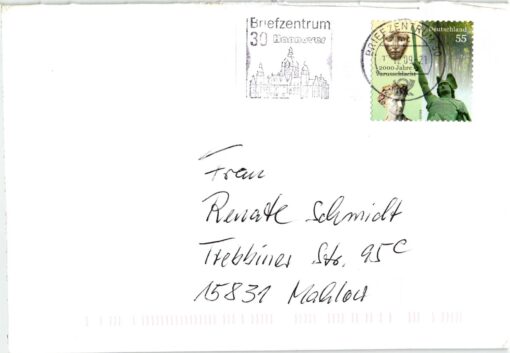 Briefzentrum
30 Hannover
Deutschland
55
BRIEFZENTRUM 30
2000 Jahre
Varusschlacht
Frau
Renate Schmidt
Trebbiner Str. 95C
15831 Mahlow